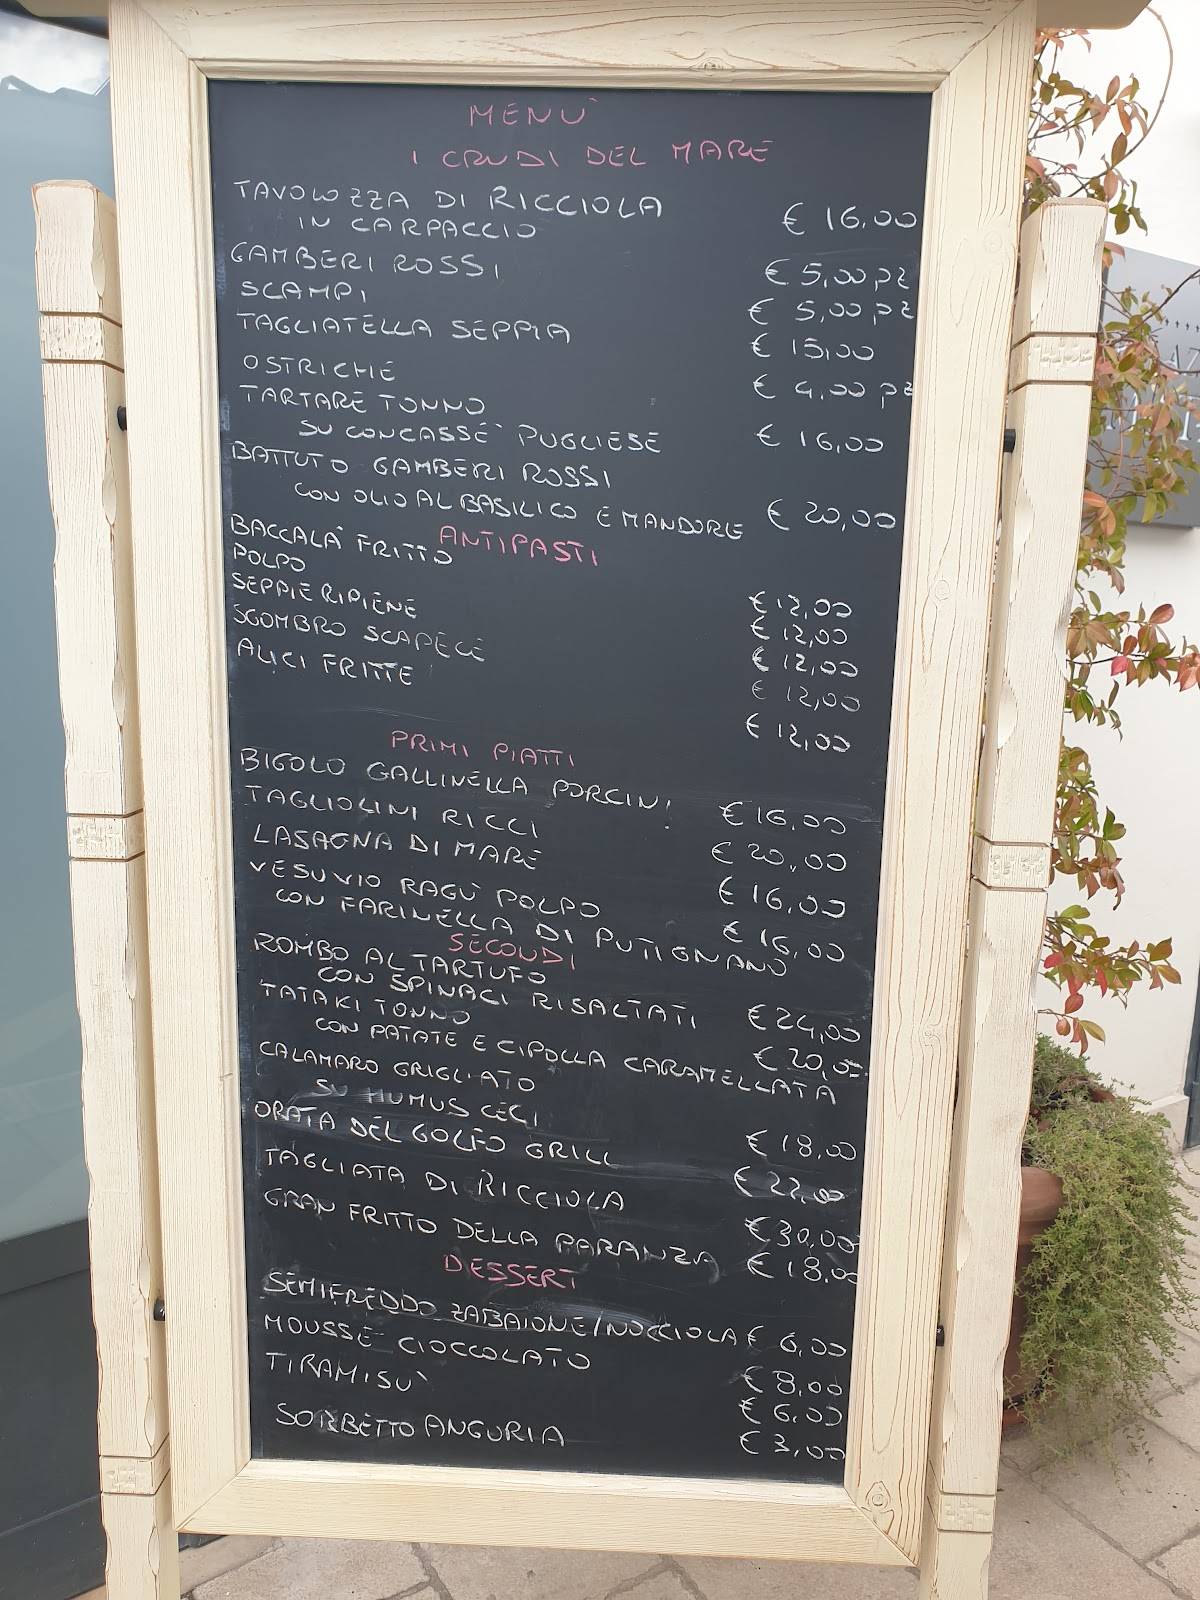 MENÙ
I CRUDI DEL MARE
TAVOLOZZA DI RICCIOLA
IN CARPACCIO € 16,00
GAMBERI ROSSI € 5,00 PZ
SCAMPI € 5,00 PZ
TAGLIATELLA SEPPIA € 15,00
OSTRICHE € 4,00 PZ
TARTARE TONNO
SU CONCASSÈ PUGLIESE € 16,00
BATTUTO GAMBERI ROSSI
CON OLIO AL BASILICO E MANDORLE € 20,00
ANTIPASTI
BACCALÀ FRITTO € 12,00
POLPO € 12,00
SEPPIE RIPIENE € 12,00
SGOMBRO SCAPECE € 12,00
ALICI FRITTE € 12,00
PRIMI PIATTI
BIGOLO GALLINELLA PORCINI € 16,00
TAGLIOLINI RICCI € 20,00
LASAGNA DI MARE € 16,00
VESUVIO RAGÙ POLPO € 16,00
CON FARINELLA DI PUTIGNANO
SECONDI
ROMBO AL TARTUFO
CON SPINACI RISALTATI € 24,00
TATAKI TONNO € 20,00
CON PATATE E CIPOLLA CARAMELLATA
CALAMARO GRIGLIATO
SU HUMUS CECI € 18,00
ORATA DEL GOLFO GRILL € 22,00
TAGLIATA DI RICCIOLA € 30,00
GRAN FRITTO DELLA PARANZA € 18,00
DESSERT
SEMIFREDDO ZABAIONE/NOCCIOLA € 6,00
MOUSSE CIOCCOLATO € 8,00
TIRAMISÙ € 6,00
SORBETTO ANGURIA € 3,00